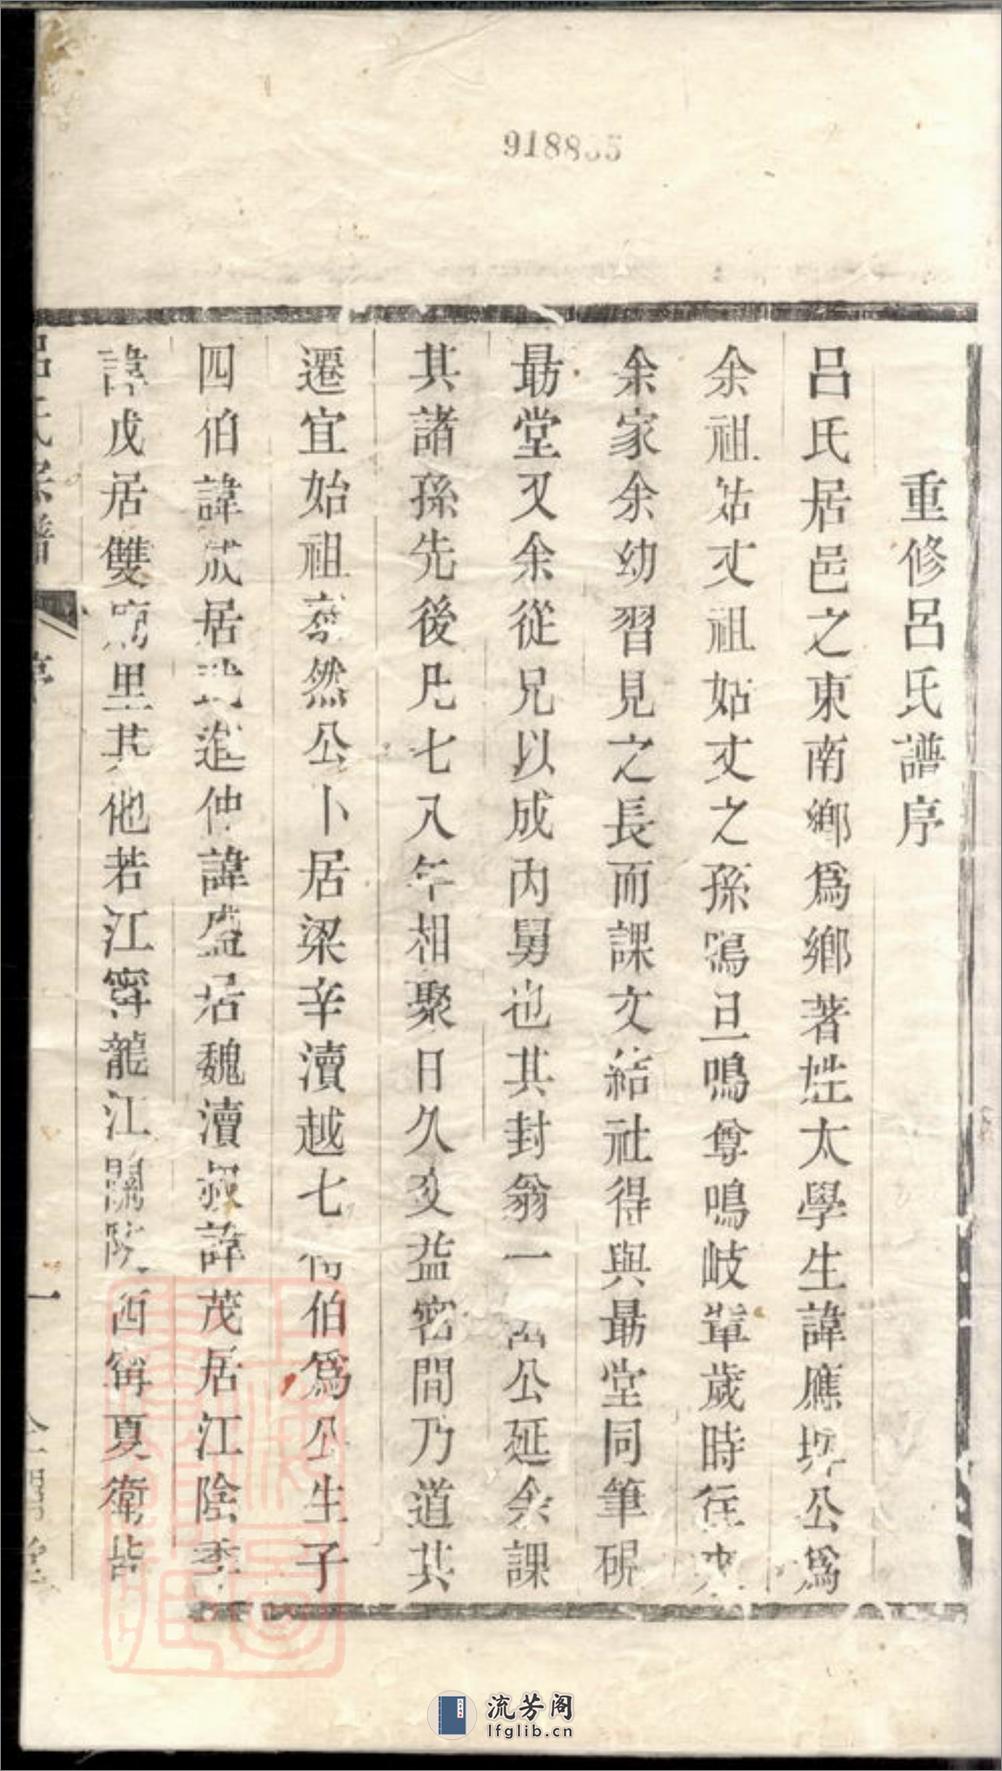 重修呂氏譜序
呂氏居邑之東南鄉爲鄉著姓太學生諱應坤公爲
余祖姑丈祖姑丈之孫鳴旦鳴尊鳴岐輩歲時往來
余家余幼習見之長而課文結社得與最堂同筆硯
最堂又余從兄以成內舅也其封翁一 公延余課
其諸孫先後凡七八年相聚日久交益密間乃道其
遷宜始祖 然公卜居梁辛瀆越七傳伯爲公生子
四伯諱成居武進仲諱盛居魏瀆叔諱茂居江陰季
諱戊居雙廟里其他若江寧龍江關陝西寧夏衛皆
呂氏宗譜
序
一
918835
流芳阁
lfglib.cn